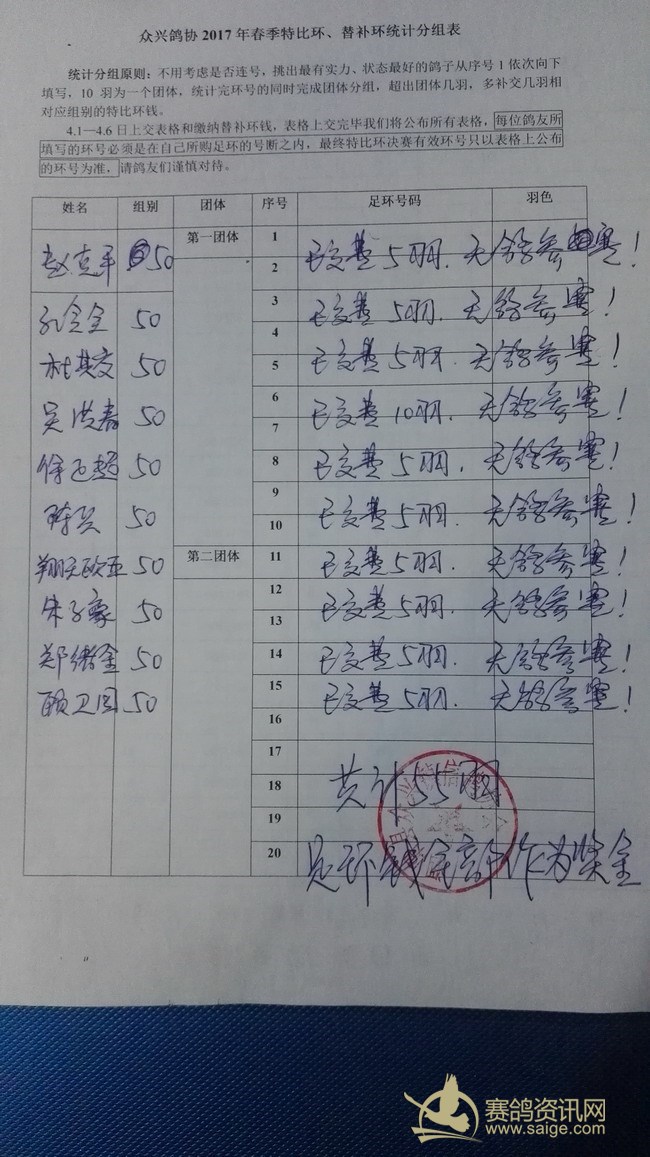 众兴鸽协 2017 年春季特比环、替补环统计分组表
统计分组原则：不用考虑是否连号，挑出最有实力、状态最好的鸽子从序号 1 依次向下
填写，10 羽为一个团体，统计完环号的同时完成团体分组，超出团体几羽，多补交几羽相
对应组别的特比环钱。
4.1—4.6 日上交表格和缴纳替补环钱，表格上交完毕我们将公布所有表格，每位鸽友所
填写的环号必须是在自己所购足环的号断之内，最终特比环决赛有效环号只以表格上公布
的环号为准，请鸽友们谨慎对待。
姓名 组别 团体 序号 足环号码 羽色
第一团体 1
赵克平 50 2 已交费 5羽. 无鸽参赛！
3
孔令全 50 已交费 50羽. 无鸽参赛！
4
杜其文 50 5 已交费 5羽. 无鸽参赛！
6
吴洪春 50 7 已交费 10羽. 无鸽参赛！
徐正超 50 8 已交费 5羽. 无鸽参赛！
9
陈兵 50 10 已交费 5羽. 无鸽参赛！
翔天欧亚 50 第二团体 11 已交费 5羽. 无鸽参赛！
12
朱子豪 50 13 已交费 5羽. 无鸽参赛！
郑绪金 50 14 已交费 5羽. 无鸽参赛！
顾卫国 50 15 已交费 5羽. 无鸽参赛！
16
17
18 共计55羽
19
20 足环钱全部作为奖金
赛鸽资讯网
www.saige.com